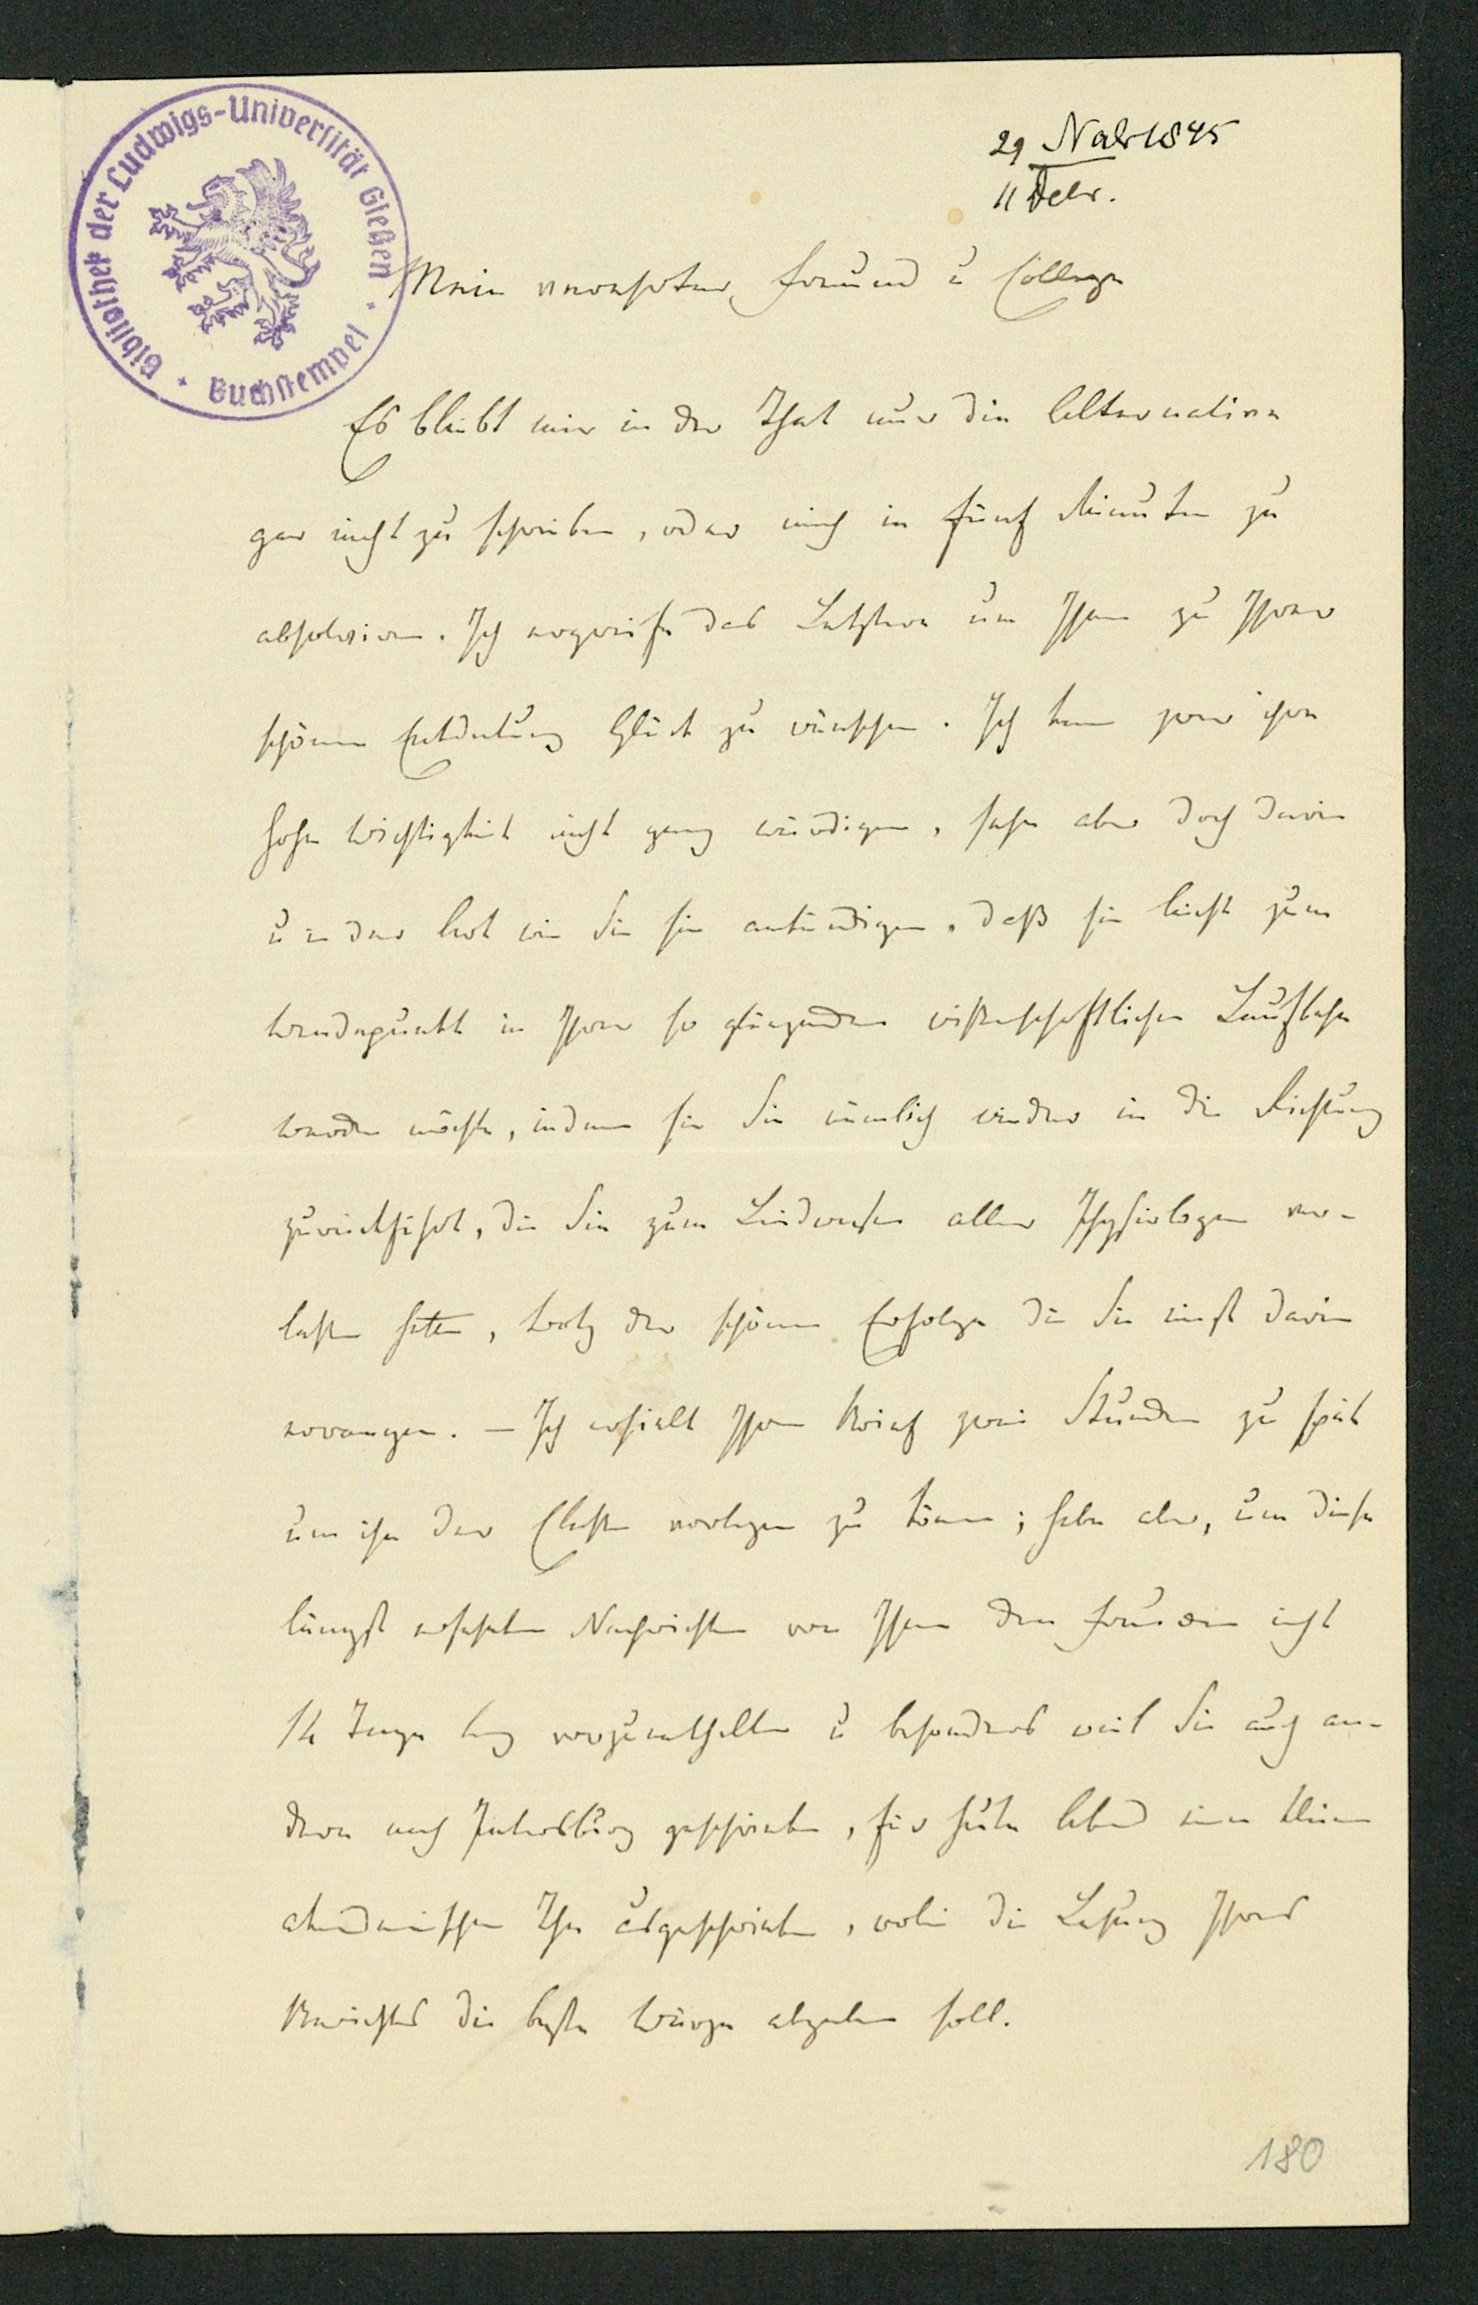 Bibliothek der Ludwigs-Universität Gießen
Buchstempel
29 Nabr 1845
11 Debr.
Mein verehrter Freund u College
Es bleibt mir in der That nur die Alternative
gar nicht zu schreiben, oder mich in fünf Minuten zu
absolviren. Ich ergreife das Letztere um Ihnen zu Ihrer
schönen Entdekung Glück zu wünschen. Ich kann zwar ihre
hohe Wichtigkeit nicht ganz würdigen, sehe aber doch darin
u in der Art wie Sie sie ankündigen, daß sie leicht zum
Wendepunkt in Ihrer so glänzenden wissenschaftlichen Laufbahn
werden möchte, indem sie Sie nämlich wieder in die Richtung
zurückführt, die Sie zum Leidwesen aller Physiologen ver-
lassen hatten, trotz der schönen Erfolge die Sie einst darin
errangen. – Ich erhielt Ihren Brief zwei Stunden zu spät
um ihn der Classe vorlegen zu können; habe aber, um diese
längst ersehnten Nachrichten von Ihnen den Freunden nicht
14 Tage lang vorzuenthalten u besonders weil Sie auch an-
dere nach Petersburg geschrieben, für heute Abend einen kleinen
akademischen Thee ausgeschrieben, wobei die Lesung Ihres
Berichtes die beste Würze abgeben soll.
180